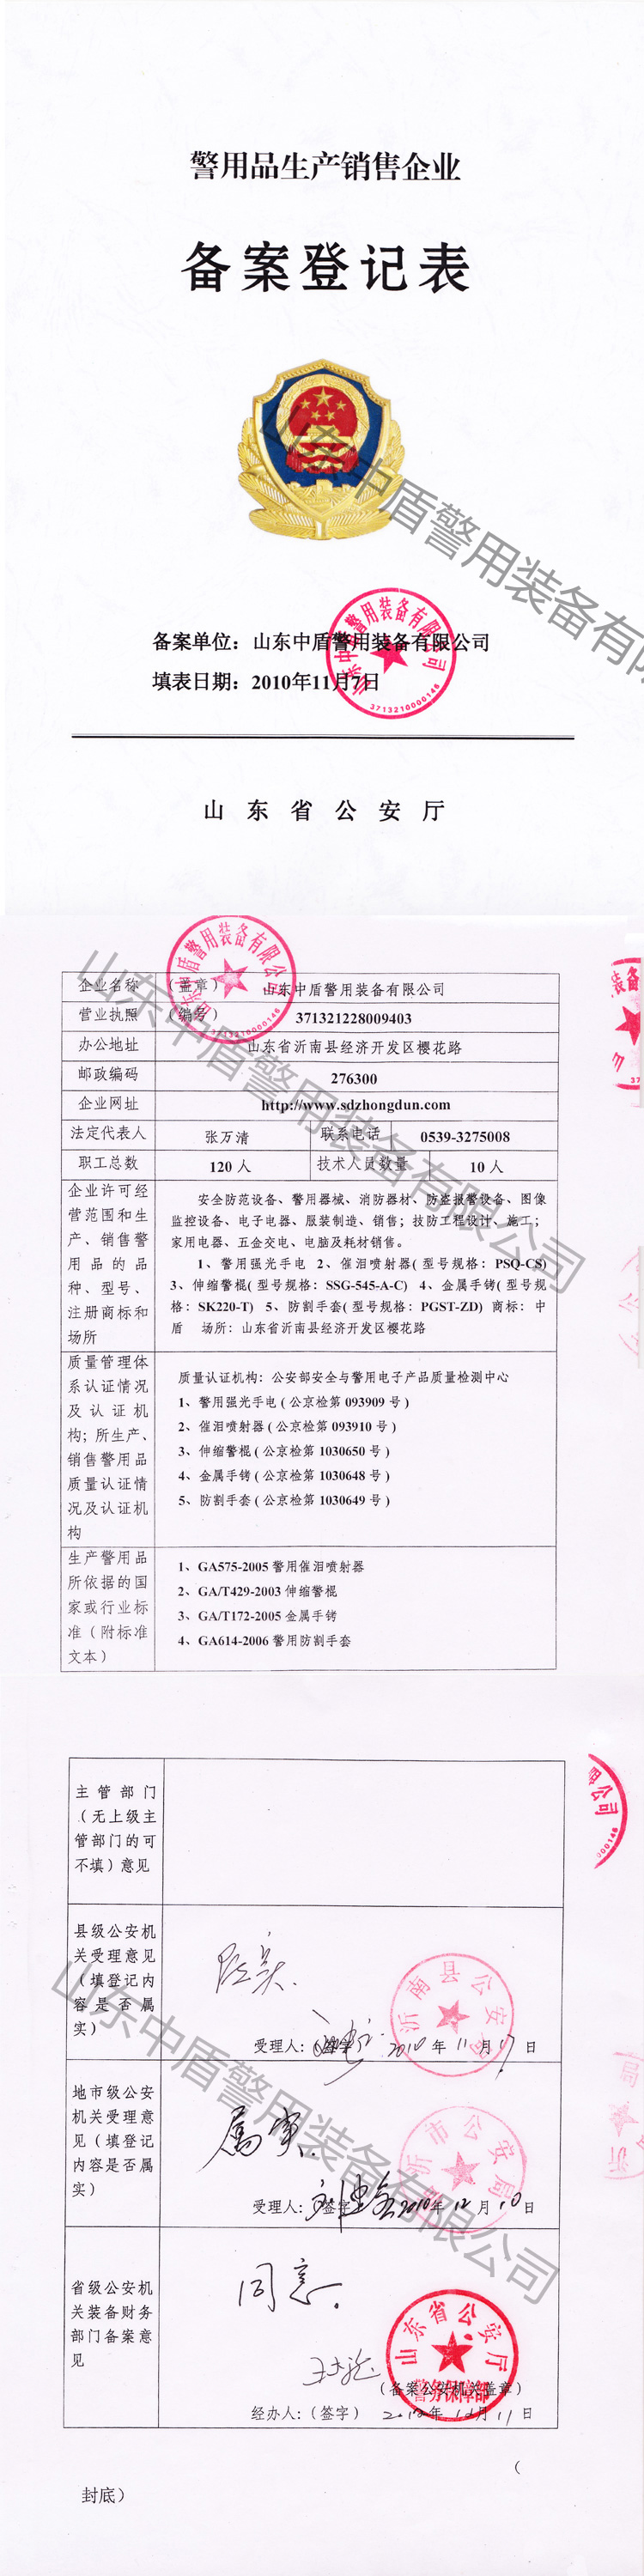 警用品生产销售企业
备案登记表
备案单位：山东中盾警用装备有限公司
填表日期：2010年11月7日
山东中盾警用装备有限公司
3713210000146
山东省公安厅
企业名称
（盖章）
山东中盾警用装备有限公司
营业执照
（编号）
371321228009403
办公地址
山东省沂南县经济开发区樱花路
邮政编码
276300
企业网址
http://www.sdzhongdun.com
法定代表人
张万清
联系电话
0539-3275008
职工总数
120 人
技术人员数量
10 人
企业许可经
营范围和生
产、销售警
用品的品
种、型号、
注册商标和
场所
安全防范设备、警用器械、消防器材、防盗报警设备、图像
监控设备、电子电器、服装制造、销售；技防工程设计、施工；
家用电器、五金交电、电脑及耗材销售。
1、警用强光手电 2、催泪喷射器( 型号规格：PSQ-CS)
3、伸缩警棍( 型号规格：SSG-545-A-C) 4、金属手铐( 型号规
格：SK220-T) 5、防割手套( 型号规格：PGST-ZD) 商标：中
盾 场所：山东省沂南县经济开发区樱花路
质量管理体
系认证情况
及认证机
构；所生产、
销售警用品
质量认证情
况及认证机
构
质量认证机构：公安部安全与警用电子产品质量检测中心
1、警用强光手电 ( 公京检第 093909 号 )
2、催泪喷射器 ( 公京检第 093910 号 )
3、伸缩警棍 ( 公京检第 1030650 号 )
4、金属手铐 ( 公京检第 1030648 号 )
5、防割手套 ( 公京检第 1030649 号 )
生产警用品
所依据的国
家或行业标
准（附标准
文本）
1、GA575-2005 警用催泪喷射器
2、GA/T429-2003 伸缩警棍
3、GA/T172-2005 金属手铐
4、GA614-2006 警用防割手套
主管部门
（无上级主
管部门的可
不填）意见
县级公安机
关受理意见
（填登记内
容是否属
实）
沂南县公安局
受理人：
2010 年 11 月 17 日
地市级公安
机关受理意
见（填登记
内容是否属
实）
属实.
临沂市公安局
受理人：（签字）
2010年 12 月 10 日
省级公安机
关装备财务
部门备案意
见
同意.
山东省公安厅
警务保障部
（备案公安机关盖章）
经办人：（签字）
年 12 月 11 日
（
封底）
山东中盾警用装备有限公司